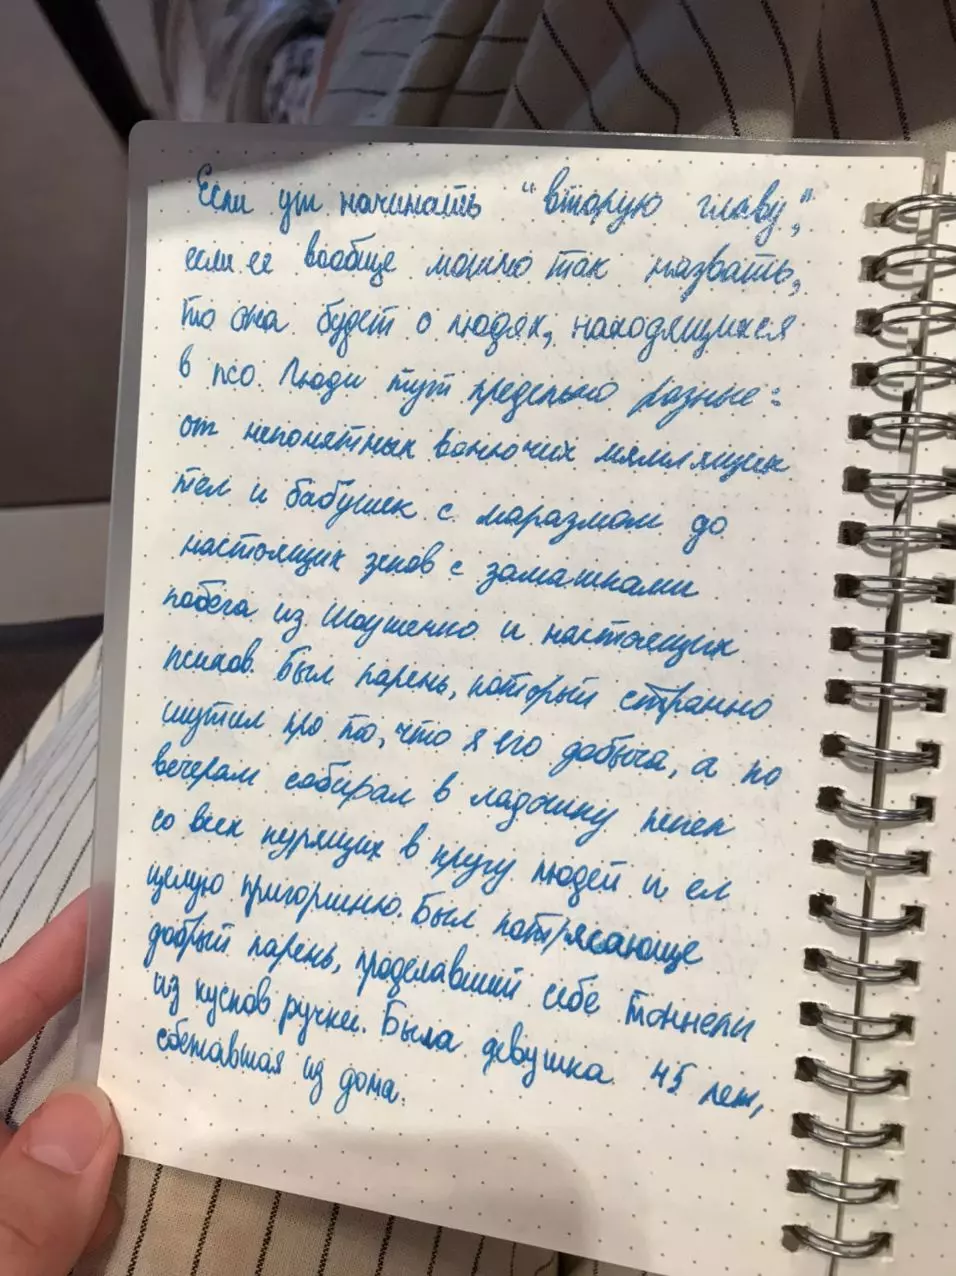 Если уж начинать "вторую главу",
если ее вообще можно так назвать,
то она будет о людях, находящихся
в псо. Люди тут предельно разные:
от непонятных вонючих мямлящих
тел и бабушек с маразмом до
настоящих зеков с замашками
побега из Шоушенко и настоящих
психов. Был парень, который странно
шутил про то, что я его добыча, а по
вечерам собирал в ладошку пепел
со всех курящих в кругу людей и ел
целую пригоршню. Был потрясающе
добрый парень, проделавший себе тоннели
из кусков ручки. Была девушка 45 лет,
сбежавшая из дома.